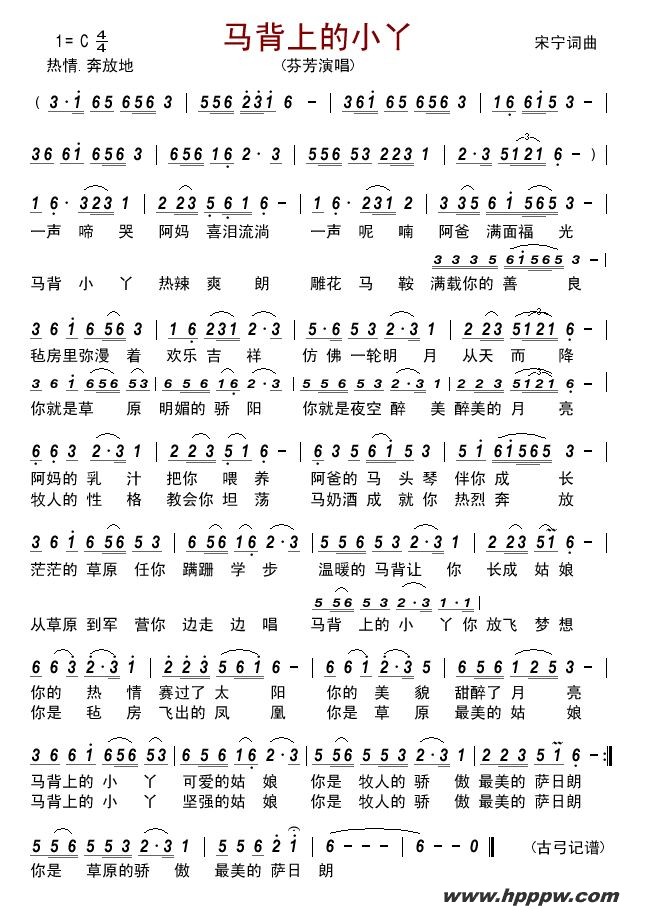 马背上的小丫
1= C 4/4
宋宁词曲
热情.奔放地
(芬芳演唱)
( 3·i 65 656 3 | 556 231 6 - | 361 65 356 3 | 16 615 3 - |
36 61 656 3 | 656 16 2·3 | 556 53 223 1 | 2·3 5121 6 - )|
1 6· 323 1 | 2 23 5 6 1 6 - | 1 6· 323 1 | 3 335 61 565 3 - |
一声 啼 哭 阿妈 喜泪流淌 一声 呢 喃 阿爸 满面福 光
3 3 3 5 61565 3 -|
马背 小 丫 热辣 爽 朗 雕花 马 鞍 满载你的 善 良
3 6 1 6 56 3 | 1 6 231 2·3 | 5·6 5 5 3 2·3 1 | 2 23 5121 6 - |
毡房里弥漫 着 欢乐 吉 祥 仿 佛 一轮明 月 从天 而 降
3 6 1 656 53 | 5 56 5 16 2·3 | 5 5 6 5 3 2·3 1 | 2 2 3 5121 6 - |
你就是草 原 明媚的 骄 阳 你就是夜空 醉 美 醉美的 月 亮
6 6 3 2·3 1 | 2 23 5 61 6 - | 3 5 6 61 5 3 | 5 1 61565 3 - |
阿妈的 乳 汁 把你 喂 养 阿爸的 马 头 琴 伴你 成 长
牧人的 性 格 教会你 坦 荡 马奶酒 成 就 你 热烈 奔 放
3 6 1 6 56 5 3 | 6 56 5 16 2·3 | 5 5 6 5 3 2·3 1 | 2 2 3 51 6 - |
茫茫的 草原 任你 蹒跚 学 步 温暖的 马背让 你 长成 姑 娘
5 56 5 3 2·3 1·1|
从草原 到军 营你 边走 边 唱 马背 上的 小 丫 你 放飞 梦 想
6 6 3 2·3 1 | 2 2 3 561 6 - | 6 6 3 2·3 1 | 2 2 3 5 6 6 - |
你的 热 情 赛过了 太 阳 你的 美 貌 甜醉了 月 亮
你是 毡 房 飞出的 凤 凰 你是 草 原 最美的 姑 娘
3 6 6 1 656 53 | 6 5 6 16 2·3 | 5 5 6 5 3 2·3 1 | 2 2 3 51 6 - :||
马背上的 小 丫 可爱的姑 娘 你是 牧人的 骄 傲 最美的 萨日朗
马背上的 小 丫 坚强的姑 娘 你是 牧人的 骄 傲 最美的 萨日朗
5 5 6 5 3 2·3 1 | 5 5 6 2 1 | 6 - - - | 6 - - 0 ||
(古弓记谱)
你是 草原的骄 傲 最美的 萨日 朗
www.hpppw.com